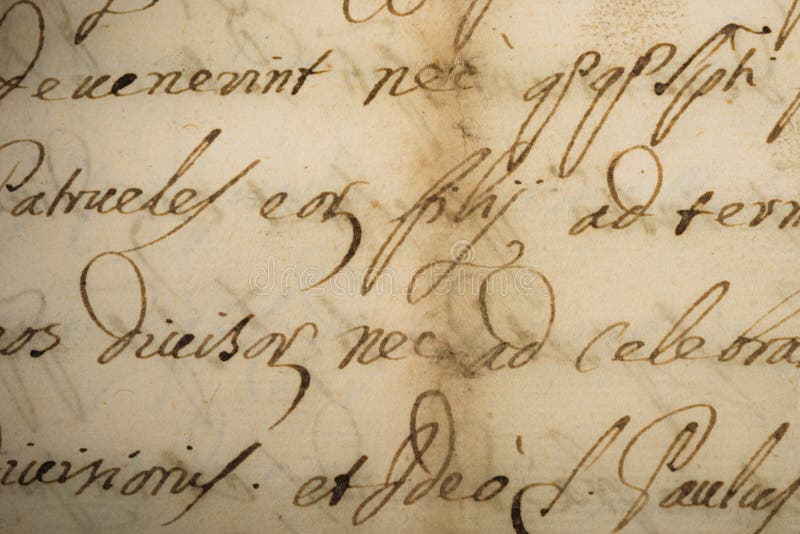 devenerint nec
Patrueles eor filij ad term
eos divisor nec ad celebra
divisionis. et Ideò S. Paulus
dreamstime